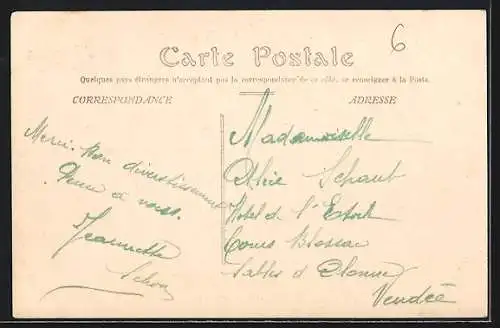 6
Carte Postale
Quelques pays étrangers n'acceptant pas la correspondance de ce côté, se renseigner à la Poste.
CORRESPONDANCE
ADRESSE
Merci. Bon divertissement
à vous.
Jeannette
Mademoiselle
Schaut
Hotel de l'Etoile
Cours Blossac
Sables d'Olonne
Vendée